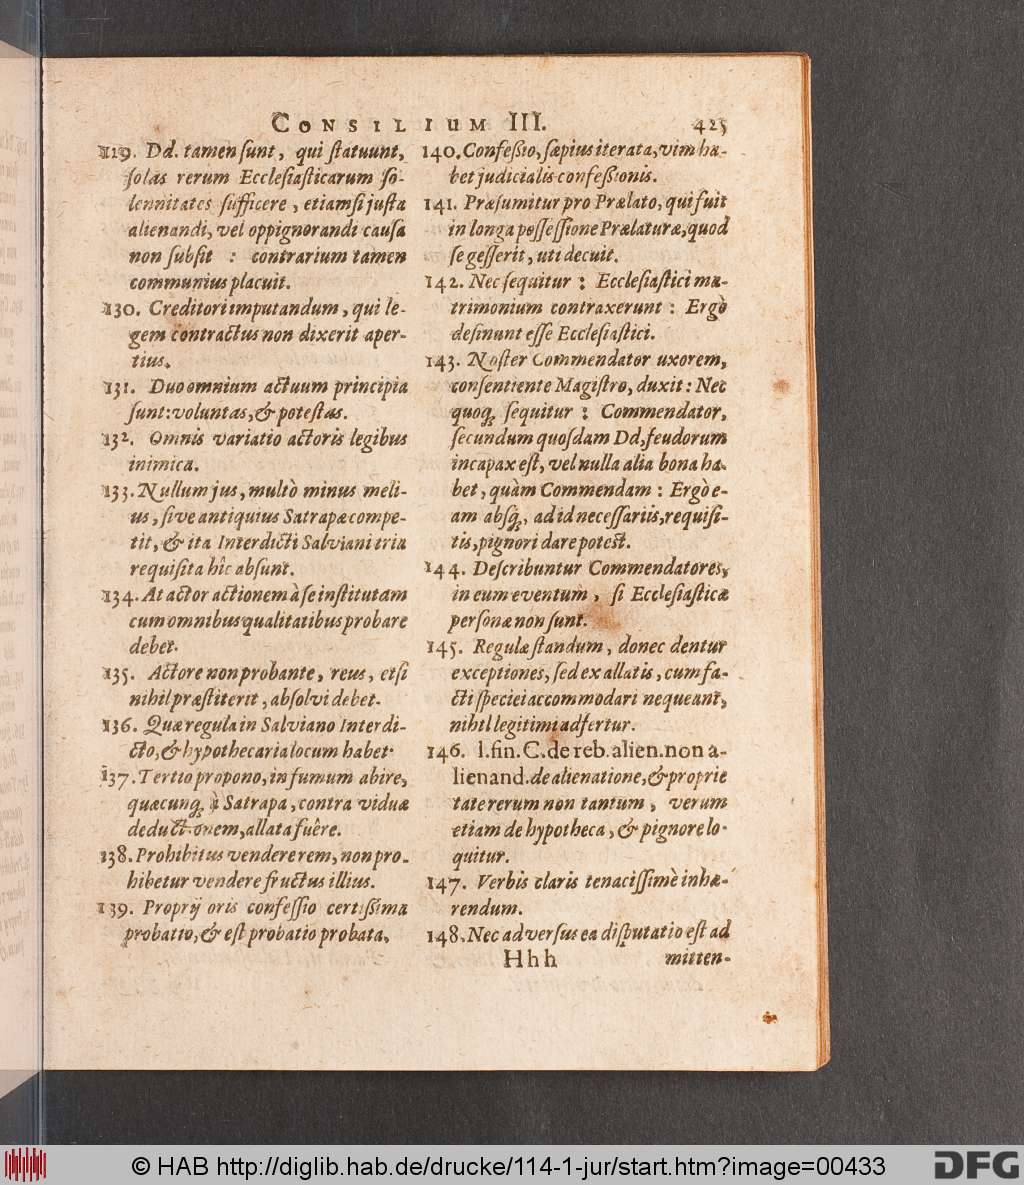 CONSILIUM III. 425
119. Dd. tamen ſunt, qui ſtatuunt,
ſolas rerum Eccleſiaſticarum ſo-
lennitates ſufficere, etiamſi juſta
alienandi, vel oppignorandi cauſa
non ſubſit : contrarium tamen
communius placuit.
130. Creditori imputandum, qui le-
gem contractus non dixerit aper-
tius.
131. Duo omnium actuum principia
ſunt: voluntas, & poteſtas.
132. Omnis variatio actoris legibus
inimica.
133. Nullum jus, multò minus meli-
us, ſive antiquius Satrapæ compe-
tit, & ita Interdicti Salviani tria
requiſita hîc abſunt.
134. At actor actionem à ſe inſtitutam
cum omnibus qualitatibus probare
debet.
135. Actore non probante, reus, etſi
nihil præſtiterit, abſolvi debet.
136. Quæ regula in Salviano Interdi-
cto, & hypothecaria locum habet.
137. Tertio propono, in fumum abire,
quæcunq; à Satrapa, contra viduæ
deduct onem, allata fuêre.
138. Prohibitus vendere rem, non pro-
hibetur vendere fructus illius.
139. Proprij oris confeſſio certiſſima
probatio, & eſt probatio probata.
140. Confeßio, ſæpius iterata, vim ha-
bet judicialis confeßionis.
141. Præſumitur pro Prælato, qui fuit
in longa poſſeſſione Prælaturæ, quod
ſe geſſerit, uti decuit.
142. Nec ſequitur : Eccleſiaſtici ma-
trimonium contraxerunt : Ergò
deſinunt eſſe Eccleſiaſtici.
143. Noſter Commendator uxorem,
conſentiente Magiſtro, duxit: Nec
quoq; ſequitur : Commendator,
ſecundum quoſdam Dd, feudorum
incapax eſt, vel nulla alia bona ha-
bet, quàm Commendam : Ergò e-
am abſq;, ad id neceſſariis, requiſi-
tis, pignori dare poteſt.
144. Deſcribuntur Commendatores,
in eum eventum, ſi Eccleſiaſticæ
perſonæ non ſunt.
145. Regulæ ſtandum, donec dentur
exceptiones, ſed ex allatis, cum fa-
cti ſpeciei accommodari nequeant,
nihil legitimi adfertur.
146. l. fin. C. de reb. alien. non a-
lienand. de alienatione, & proprie
tate rerum non tantum, verum
etiam de hypotheca, & pignore lo-
quitur.
147. Verbis claris tenaciſſimè inhæ-
rendum.
148. Nec adverſus ea diſputatio eſt ad
Hhh mitten-
© HAB http://diglib.hab.de/drucke/114-1-jur/start.htm?image=00433
DFG